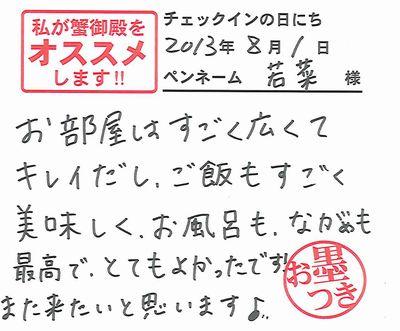 私が蟹御殿を
オススメ
します!!
チェックインの日にち
2013年 8月 1日
ペンネーム 若菜 様
お部屋はすごく広くて
キレイだし、ご飯もすごく
美味しく、お風呂も、ながめも
最高で、とてもよかったです!
また来たいと思います♪
お墨つき